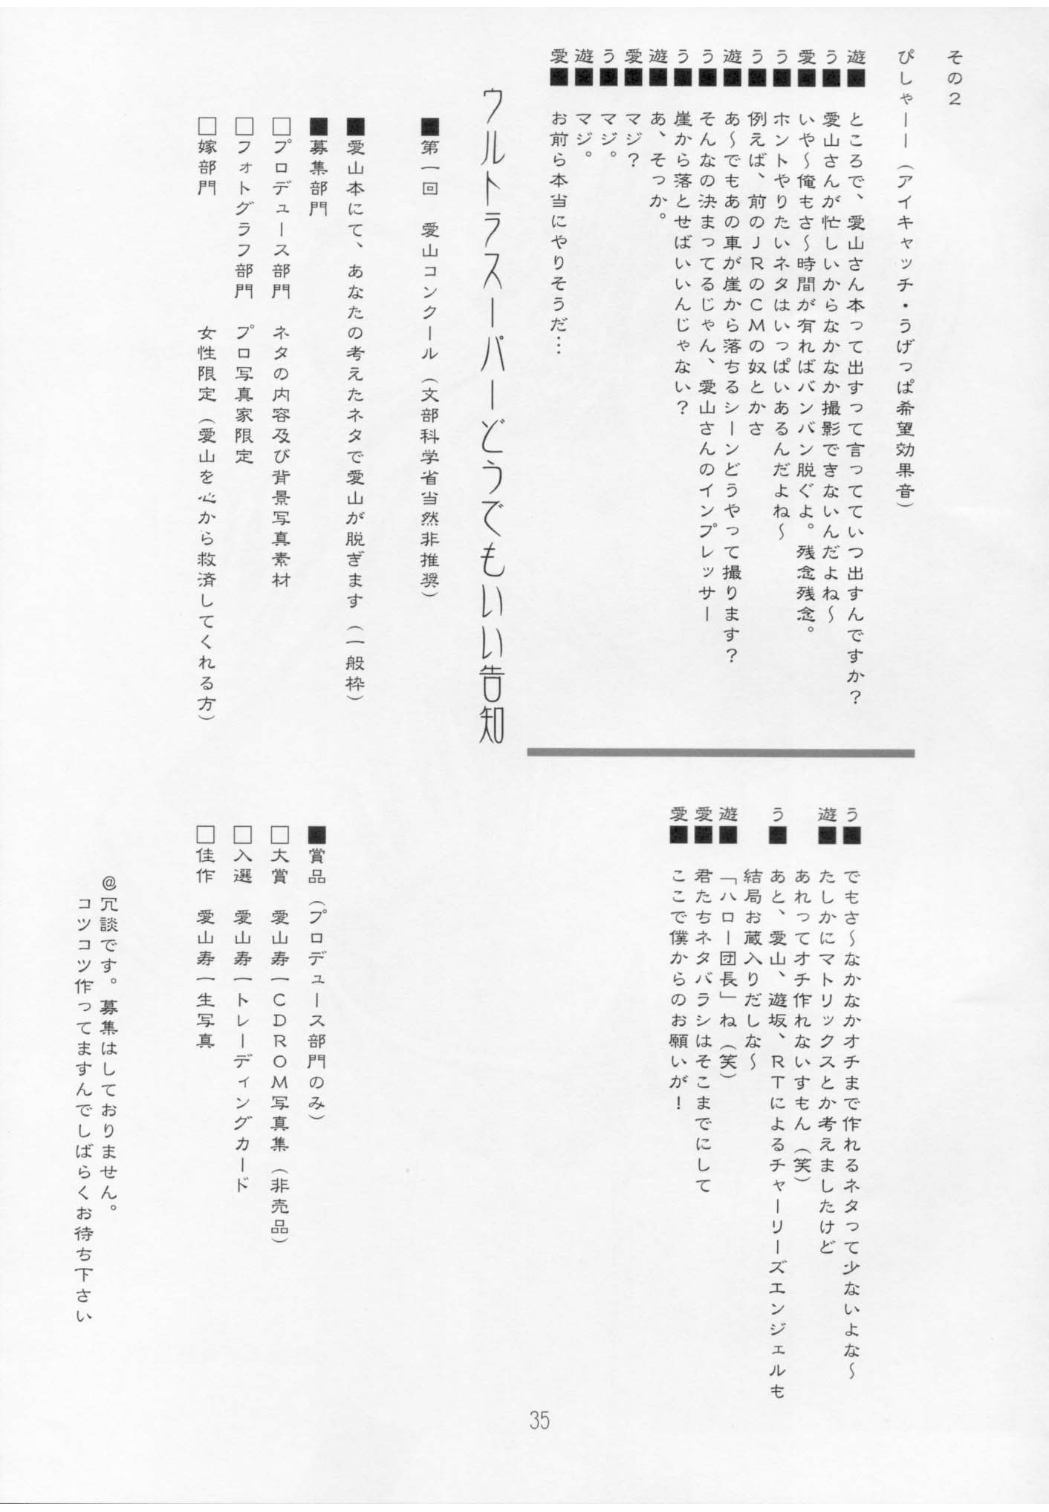 その２
ぴしゃーー（アイキャッチ・うげっぱ希望効果音）
遊■ところで、愛山さん本って出すって言ってていつ出すんですか？
う■愛山さんが忙しいからなかなか撮影できないんだよね〜
愛■いや〜俺もさ〜時間が有ればバンバン脱ぐよ。残念残念。
う■ホントやりたいネタはいっぱいあるんだよね〜
う■例えば、前のＪＲのＣＭの奴とかさ
遊■あ〜でもあの車が崖から落ちるシーンどうやって撮ります？
う■そんなの決まってるじゃん、愛山さんのインプレッサー
う■崖から落とせばいいんじゃない？
遊■あ、そっか。
愛■マジ？
う■マジ。
遊■マジ。
愛■お前ら本当にやりそうだ…
う■でもさ〜なかなかオチまで作れるネタって少ないよな〜
遊■たしかにマトリックスとか考えましたけど
あれってオチ作れないすもん（笑）
う■あと、愛山、遊坂、ＲＴによるチャーリーズエンジェルも
結局お蔵入りだしな〜
遊■「ハロー団長」ね（笑）
愛■君たちネタバラシはそこまでにして
愛■ここで僕からのお願いが！
ウルトラスーパーどうでもいい告知
■第一回　愛山コンクール（文部科学省当然非推奨）
■愛山本にて、あなたの考えたネタで愛山が脱ぎます（一般枠）
■募集部門
□プロデュース部門　ネタの内容及び背景写真素材
□フォトグラフ部門　プロ写真家限定
□嫁部門　女性限定（愛山を心から救済してくれる方）
■賞品（プロデュース部門のみ）
□大賞　愛山寿一ＣＤＲＯＭ写真集（非売品）
□入選　愛山寿一トレーディングカード
□佳作　愛山寿一生写真
＠冗談です。募集はしておりません。
コツコツ作ってますんでしばらくお待ち下さい
35